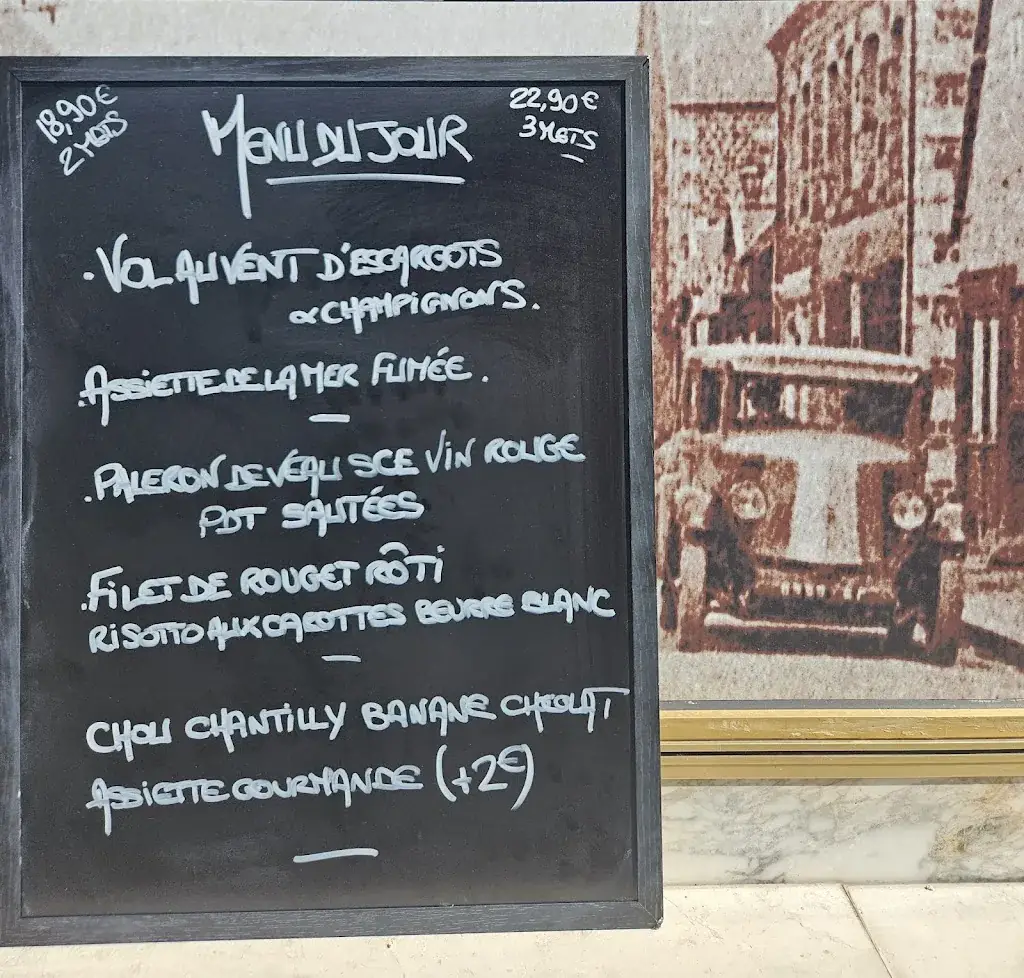 18,90€
2 METS
MENU DU JOUR
22,90€
3 METS
. VOL AU VENT D'ESCARGOTS
& CHAMPIGNONS.
. ASSIETTE DE LA MER FUMÉE.
. PALERON DE VEAU SCE VIN ROUGE
PDT SAUTÉES
. FILET DE ROUGET RÔTI
RISOTTO AUX CAROTTES BEURRE BLANC
CHOU CHANTILLY BANANE CHOCOLAT
ASSIETTE GOURMANDE (+2€)